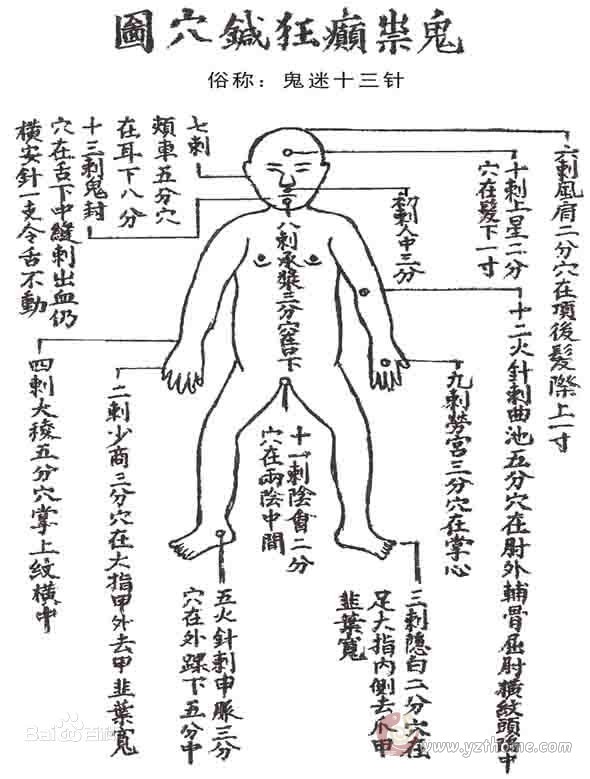 鬼祟癲狂鍼穴圖
俗称：鬼迷十三针
六刺風府二分穴在項後髮際上一寸
十刺上星二分
穴在髮下一寸
十二火針刺曲池五分穴在肘外輔骨屈肘橫紋頭陷中
初刺人中三分
九刺勞宮三分穴在掌心
八刺承漿三分穴唇下
三刺隱白二分穴在
足大指內側去爪甲
韭葉寬
十一刺陰會二分
穴在兩陰中間
五火針刺申脈三分
穴在外踝下五分中
七刺
頰車五分穴
在耳下八分
十三刺鬼封
穴在舌下中縫刺出血仍
橫安針一支令舌不動
二刺少商三分穴在大指甲外去甲韭葉寬
四刺大稜五分穴掌上紋橫中
Bai百科
www.yzthome.com